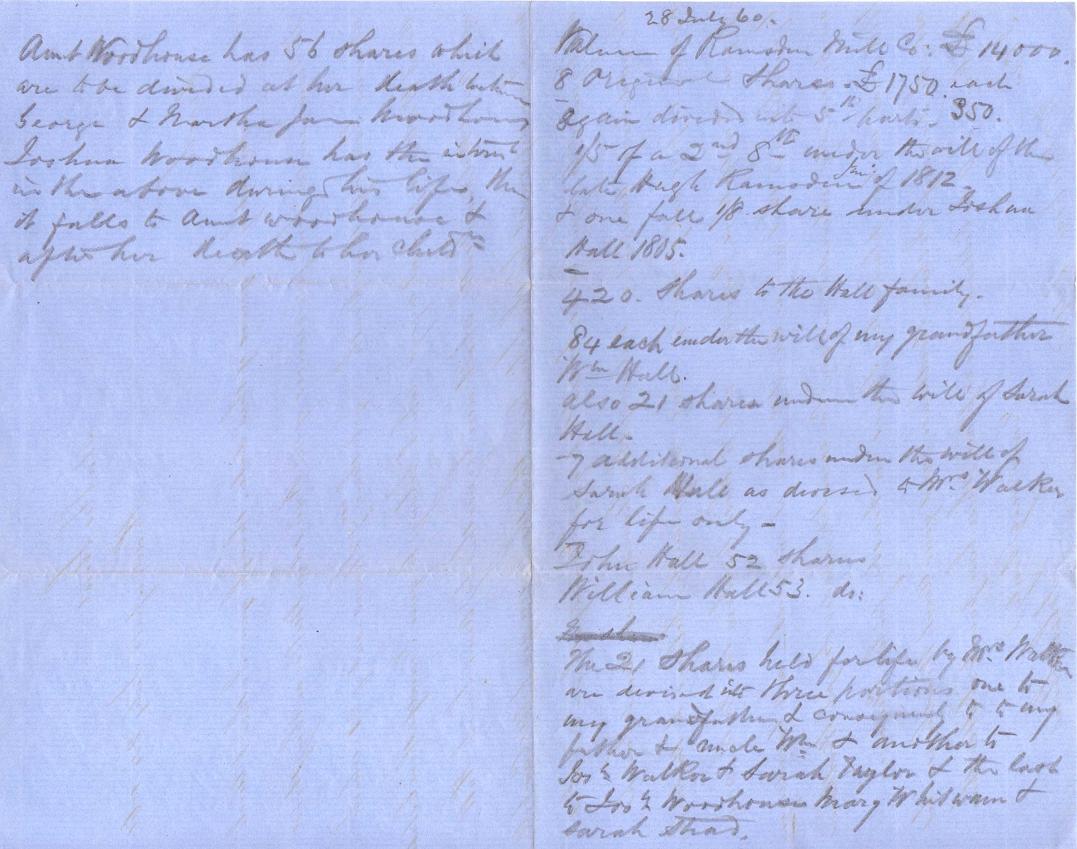 Aunt Woodhouse has 56 shares which
are to be divided at her death betn
George & Martha Jane Woodhouse
Joshua Woodhouse has the interest
in the above during his life, then
it falls to Aunt Woodhouse &
after her death to her childn
28 July 60.
Value of Ramsden Mill Co: £14000.
8 Original Shares. £1750 each
again divided into 5th parts. 350.
1/5 of a 2nd 8th under the will of the
late Hugh Ramsden of 1812.
& one full 1/8 share under Joshua
Hall 1805.
420. Shares to the Hall family.
84 each under the will of my grandfather
Wm Hall.
also 21 shares under the will of Sarah
Hall.
7 additional shares under the will of
Sarah Hall as devised to Mrs Walker
for life only -
John Hall 52 shares
William Hall 53. do:
The 21 Shares held for life by Mrs Walker
are devised into three portions one to
my grandfather & consequently to my
father & uncle Wm & another to
Josh Walker & Sarah Taylor & the last
to Josh Woodhouse Mary Whitwam &
Sarah Shad.